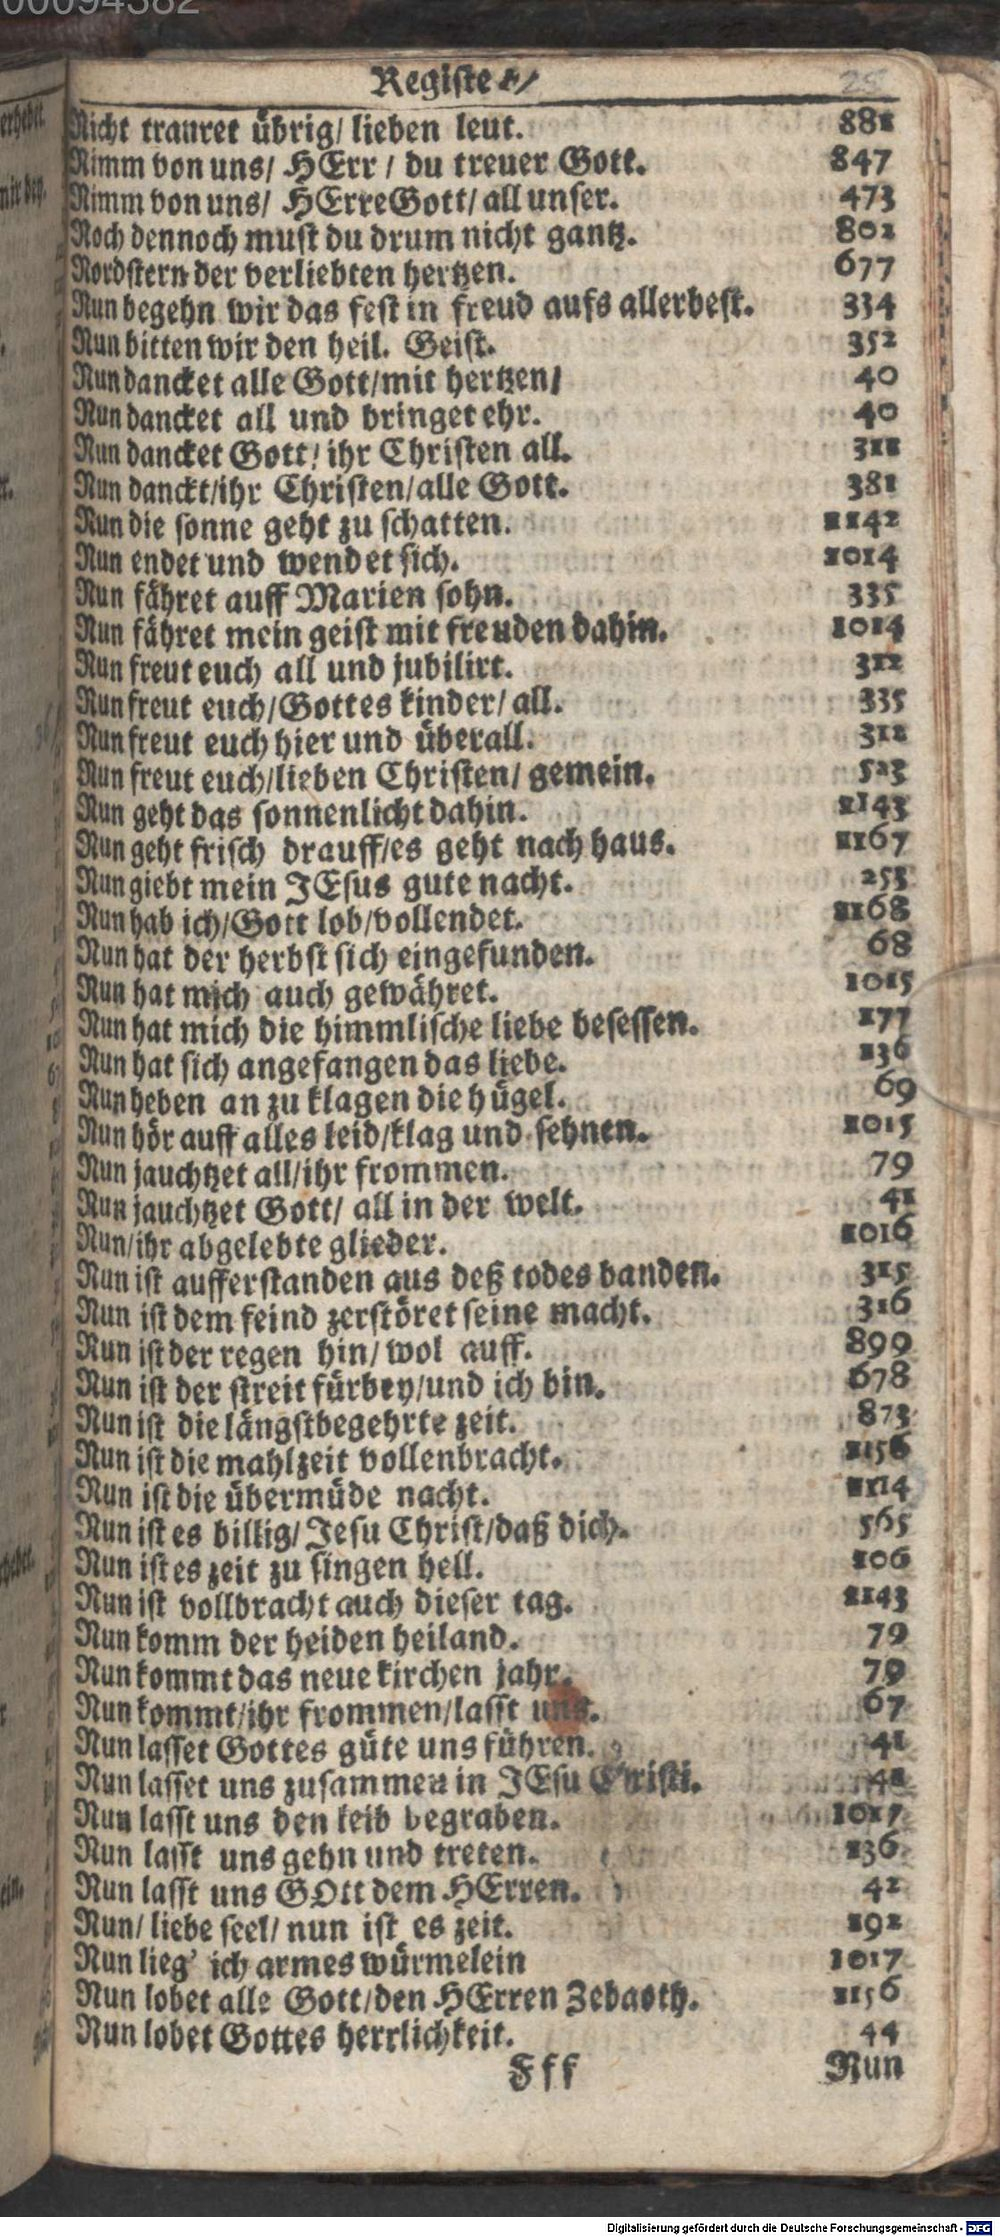 00094382
Register/
28
Nicht trauret übrig/ lieben leut. 881
Nimm von uns/ HErr / du treuer Gott. 847
Nimm von uns/ HErre Gott/ all unser. 473
Noch dennoch must du drum nicht gantz. 801
Nordstern der verliebten hertzen. 677
Nun begehn wir das fest in freud aufs allerbest. 334
Nun bitten wir den heil. Geist. 352
Nun dancket alle Gott/mit hertzen/ 40
Nun dancket all und bringet ehr. 40
Nun dancket Gott/ ihr Christen all. 311
Nun danckt/ihr Christen/alle Gott. 381
Nun die sonne geht zu schatten. 1142
Nun endet und wendet sich. 1014
Nun fähret auff Marien sohn. 335
Nun fähret mein geist mit freuden dahin. 1014
Nun freut euch all und jubilirt. 312
Nun freut euch/Gottes kinder/ all. 335
Nun freut euch hier und überall. 312
Nun freut euch/lieben Christen/ gemein. 523
Nun geht das sonnenlicht dahin. 1143
Nun geht frisch drauff/es geht nach haus. 1167
Nun giebt mein JEsus gute nacht. 255
Nun hab ich/Gott lob/vollendet. 1168
Nun hat der herbst sich eingefunden. 68
Nun hat mich auch gewähret. 1015
Nun hat mich die himmlische liebe besessen. 177
Nun hat sich angefangen das liebe. 136
Nun heben an zu klagen die hügel. 69
Nun hör auff alles leid/klag und sehnen. 1015
Nun jauchtzet all/ihr frommen. 79
Nun jauchtzet Gott/ all in der welt. 41
Nun/ihr abgelebte glieder. 1016
Nun ist aufferstanden aus deß todes banden. 315
Nun ist dem feind zerstöret seine macht. 316
Nun ist der regen hin/ wol auff. 899
Nun ist der streit fürbey/und ich bin. 678
Nun ist die längstbegehrte zeit. 873
Nun ist die mahlzeit vollenbracht. 1156
Nun ist die übermüde nacht. 1114
Nun ist es billig/ Jesu Christ/daß dich. 565
Nun ist es zeit zu singen hell. 106
Nun ist vollbracht auch dieser tag. 1143
Nun komm der heiden heiland. 79
Nun kommt das neue kirchen jahr. 79
Nun kommt/ihr frommen/lasst uns. 67
Nun lasset Gottes güte uns führen. 41
Nun lasset uns zusammen in JEsu Christi. 41
Nun lasst uns den leib begraben. 1017
Nun lasst uns gehn und treten. 136
Nun lasst uns GOtt dem HErren. 42
Nun/ liebe seel/ nun ist es zeit. 192
Nun lieg' ich armes würmelein 1017
Nun lobet alle Gott/den HErren Zebaoth. 1156
Nun lobet Gottes herrlichkeit. 44
Fff Nun
Digitalisierung gefördert durch die Deutsche Forschungsgemeinschaft - DFG